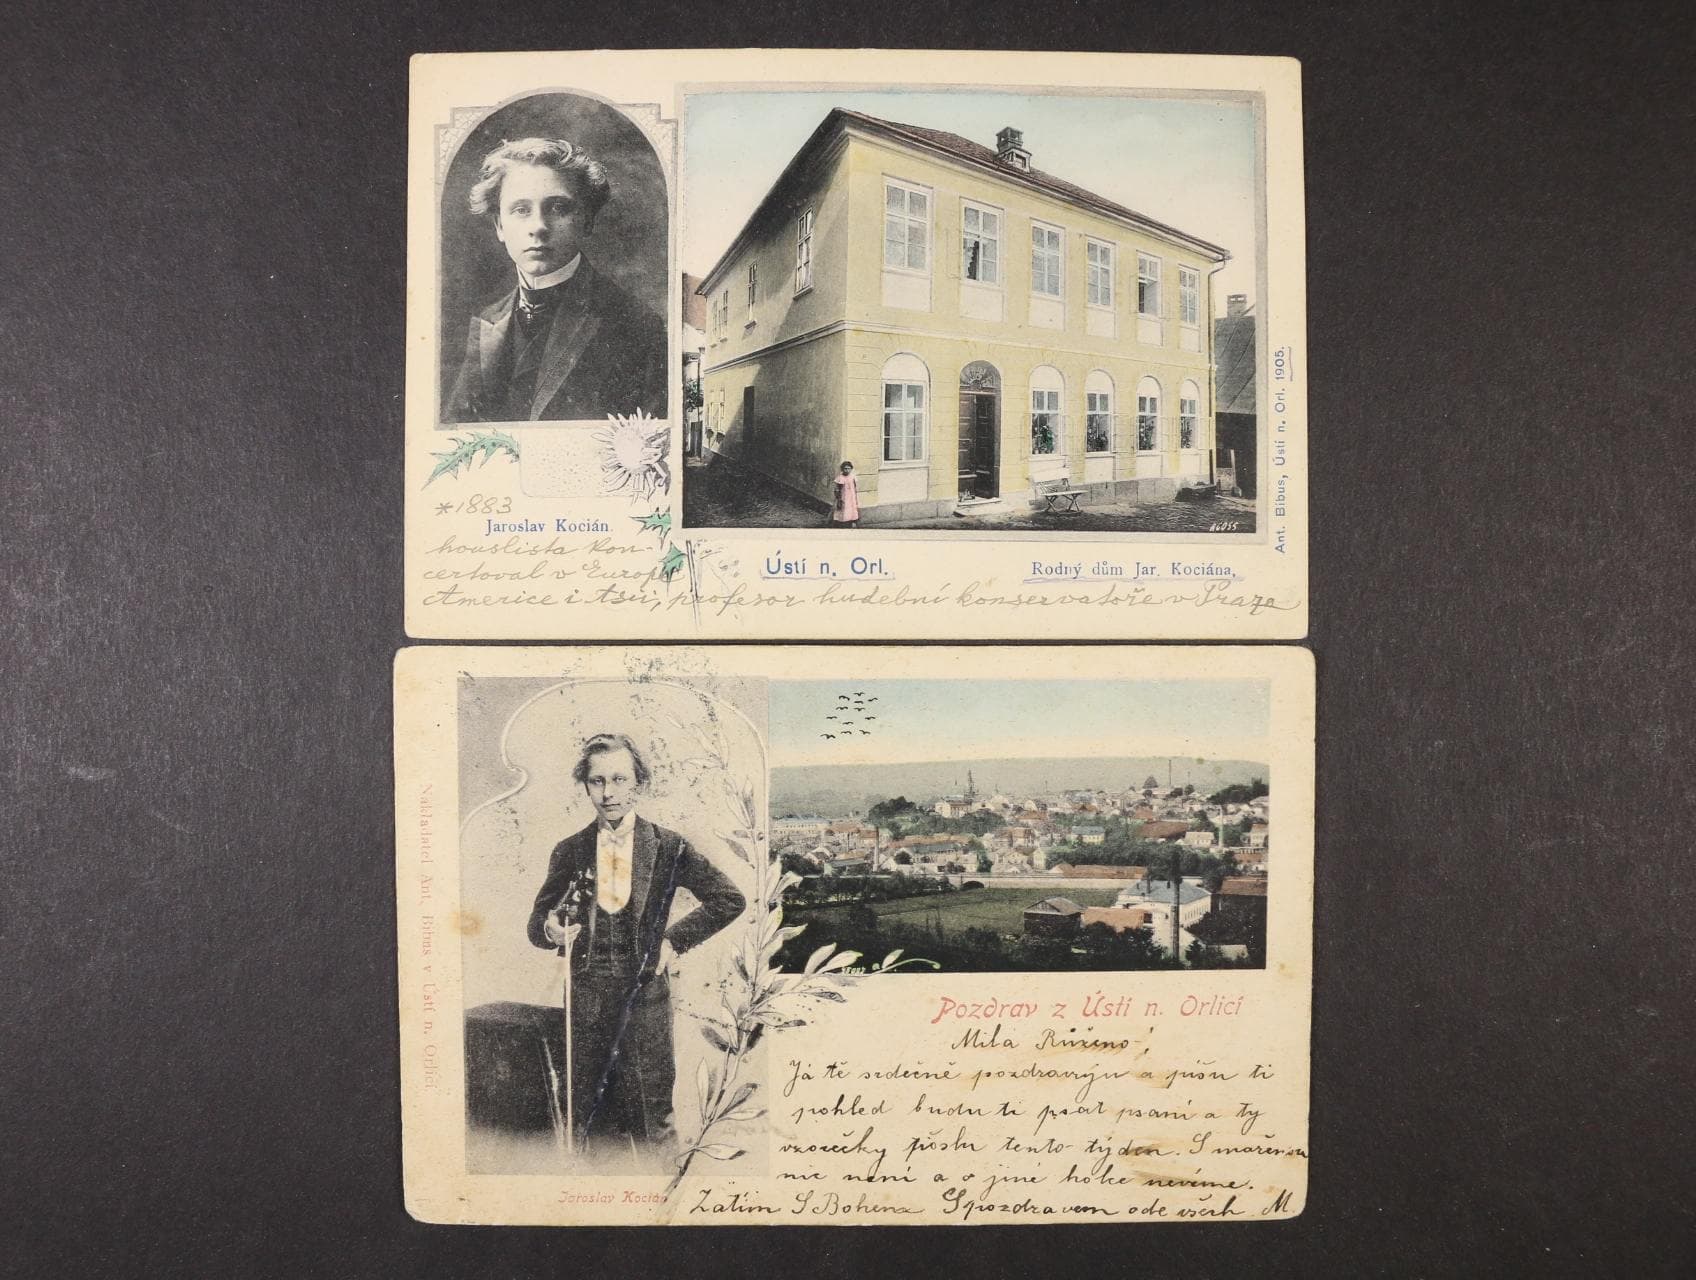 *1883
Jaroslav Kocián.
houslista kon-
certoval v Evropě
Americe i Asii, profesor hudební konservatoře v Praze
Ústí n. Orl.
Rodný dům Jar. Kociána.
Ant. Bibus, Ústí n. Orl. 1905.
Nakladatel Ant. Bibus v Ústí n. Orlicí
Jaroslav Kocian
Pozdrav z Ústí n. Orlicí
Mila Růženo!
Já tě srdečně pozdravuju a píšu ti
pohled budu ti psat psaní a ty
vzorečky pošlu tento týden. S
nic není a o jiné holce nevíme.
Zatím S Bohem S pozdravem ode všech M.